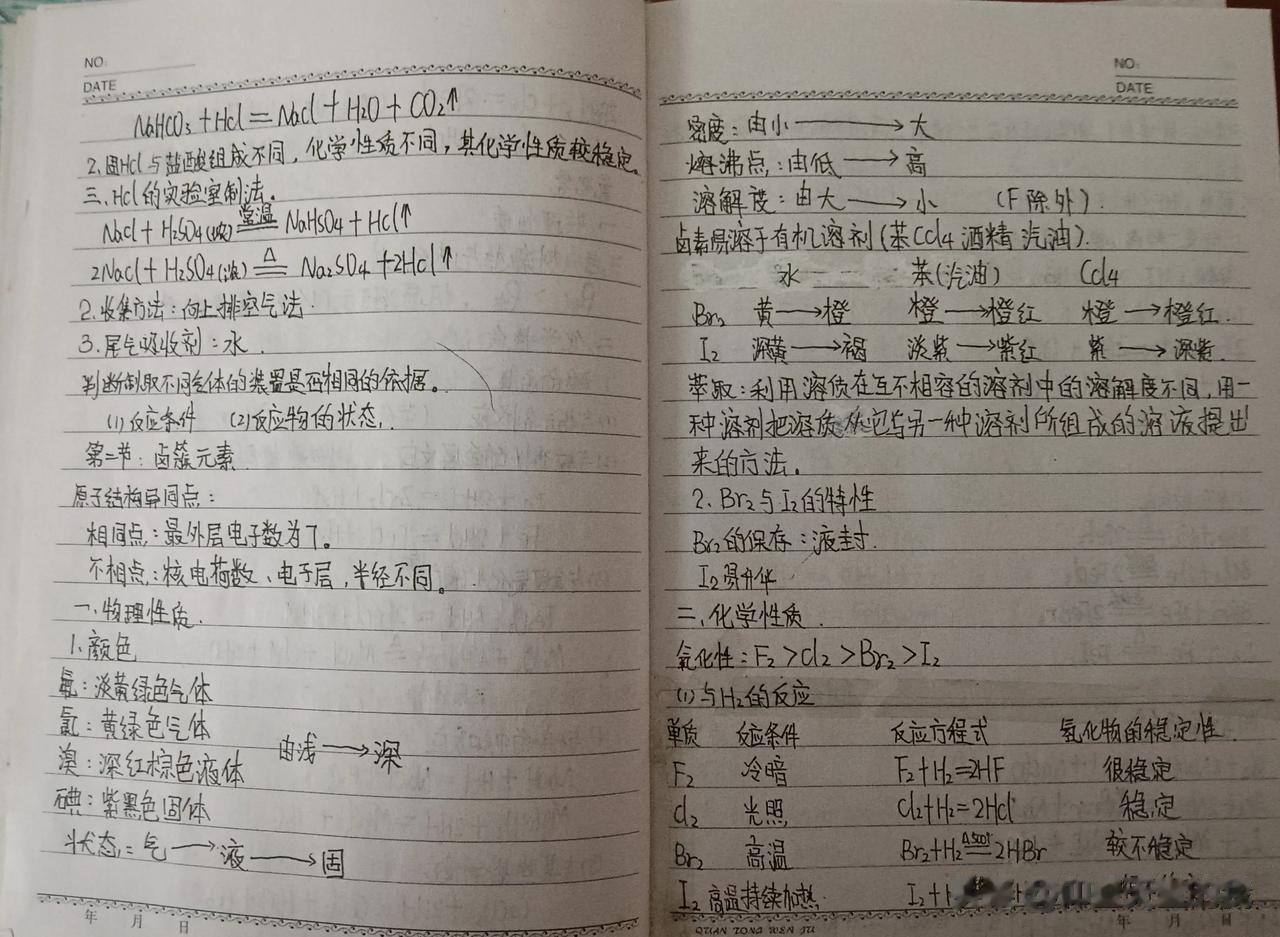 NO:
DATE
NaHCO₃+Hcl=Nacl+H₂O+CO₂↑
2.固Hcl与盐酸组成不同,化学性质不同,其化学性质较稳定。
三、Hcl的实验室制法。
Nacl+H₂SO₄(浓) 常温 NaHSO₄+Hcl↑
2Nacl+H₂SO₄(浓) △ Na₂SO₄+2Hcl↑
2.收集方法:向上排空气法.
3.尾气吸收剂:水.
判断制取不同气体的装置是否相同的依据。
(1)反应条件 (2)反应物的状态.
第二节:卤簇元素
原子结构异同点:
相同点:最外层电子数为7。
不相点:核电荷数、电子层,半径不同。
一.物理性质.
1.颜色
氟:淡黄绿色气体
氯:黄绿色气体
由浅→深
溴:深红棕色液体
碘:紫黑色固体
状态:气→液→固
年 月 日
NO:
DATE
密度:由小→大
熔沸点:由低→高
溶解度:由大→小 (F除外)
卤素易溶于有机溶剂(苯Ccl₄酒精汽油).
水 苯(汽油) Ccl₄
Br₂ 黄→橙 橙→橙红 橙→橙红.
I₂ 深黄→褐 淡紫→紫红 紫→深紫.
萃取:利用溶质在互不相容的溶剂中的溶解度不同,用一
种溶剂把溶质从它与另一种溶剂所组成的溶液提出
来的方法。
2.Br₂与I₂的特性
Br₂的保存:液封.
I₂易升华
二、化学性质.
氧化性:F₂>cl₂>Br₂>I₂
(1)与H₂的反应
单质 反应条件 反应方程式 氢化物的稳定性.
F₂ 冷暗 F₂+H₂=2HF 很稳定
cl₂ 光照 Cl₂+H₂=2Hcl 稳定
Br₂ 高温 Br₂+H₂ △500° 2HBr 较不稳定
I₂ 高温持续加热 I₂+
年 月 日